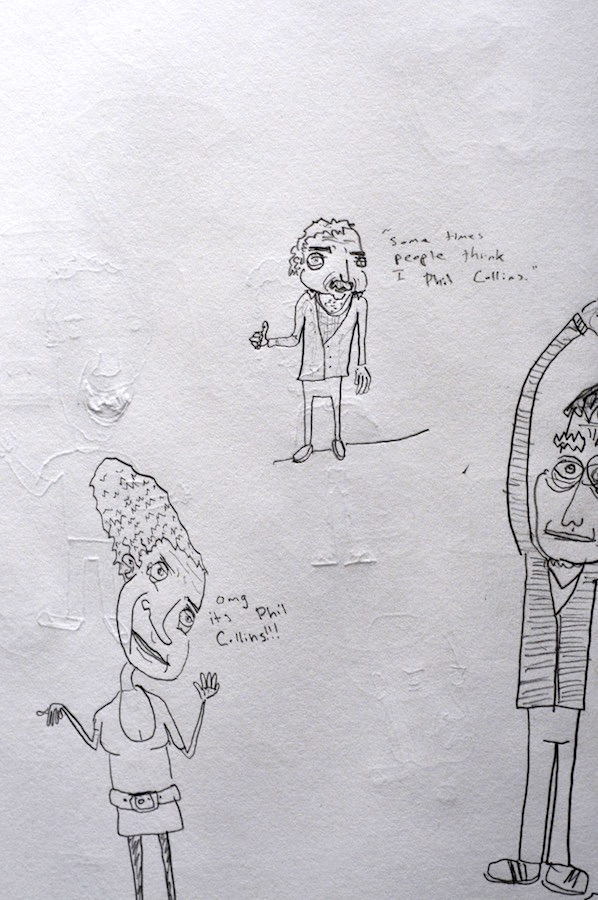 "Some times
people think
I Phil Collins."
omg
its Phil
Collins!!!